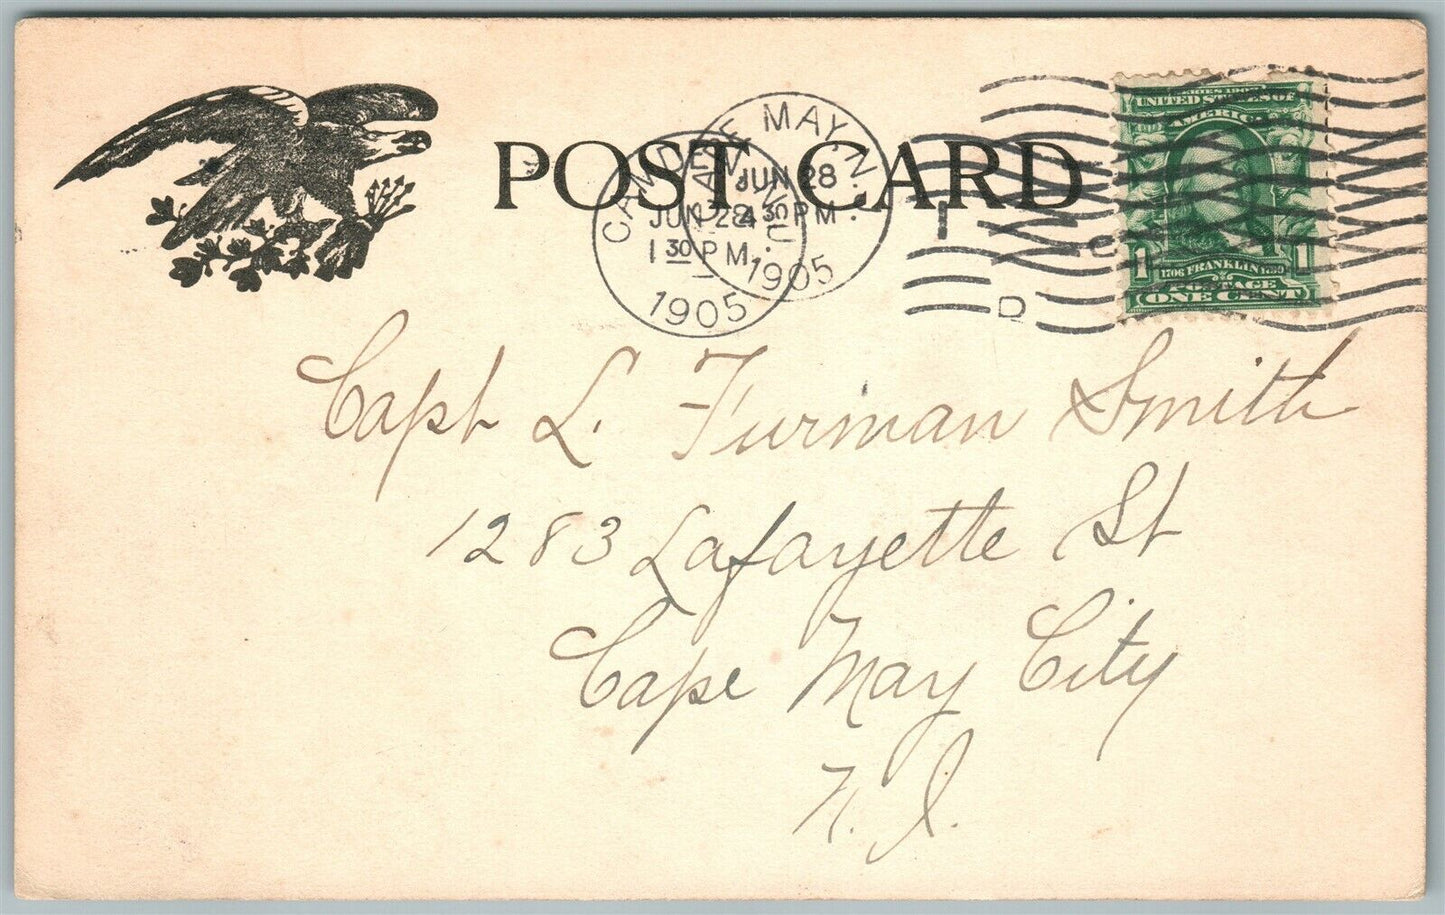 POST CARD
CAMDEN, N.J.
JUN 28
1 30 PM
1905
CAPE MAY, N.J.
JUN 28
4 30 PM
1905
1
C
D
SERIES 1902
UNITED STATES OF
AMERICA
1706 FRANKLIN 1790
1 1
POSTAGE
ONE CENT
Capt L. Furman Smith
1283 Lafayette St
Cape May City
N. J.